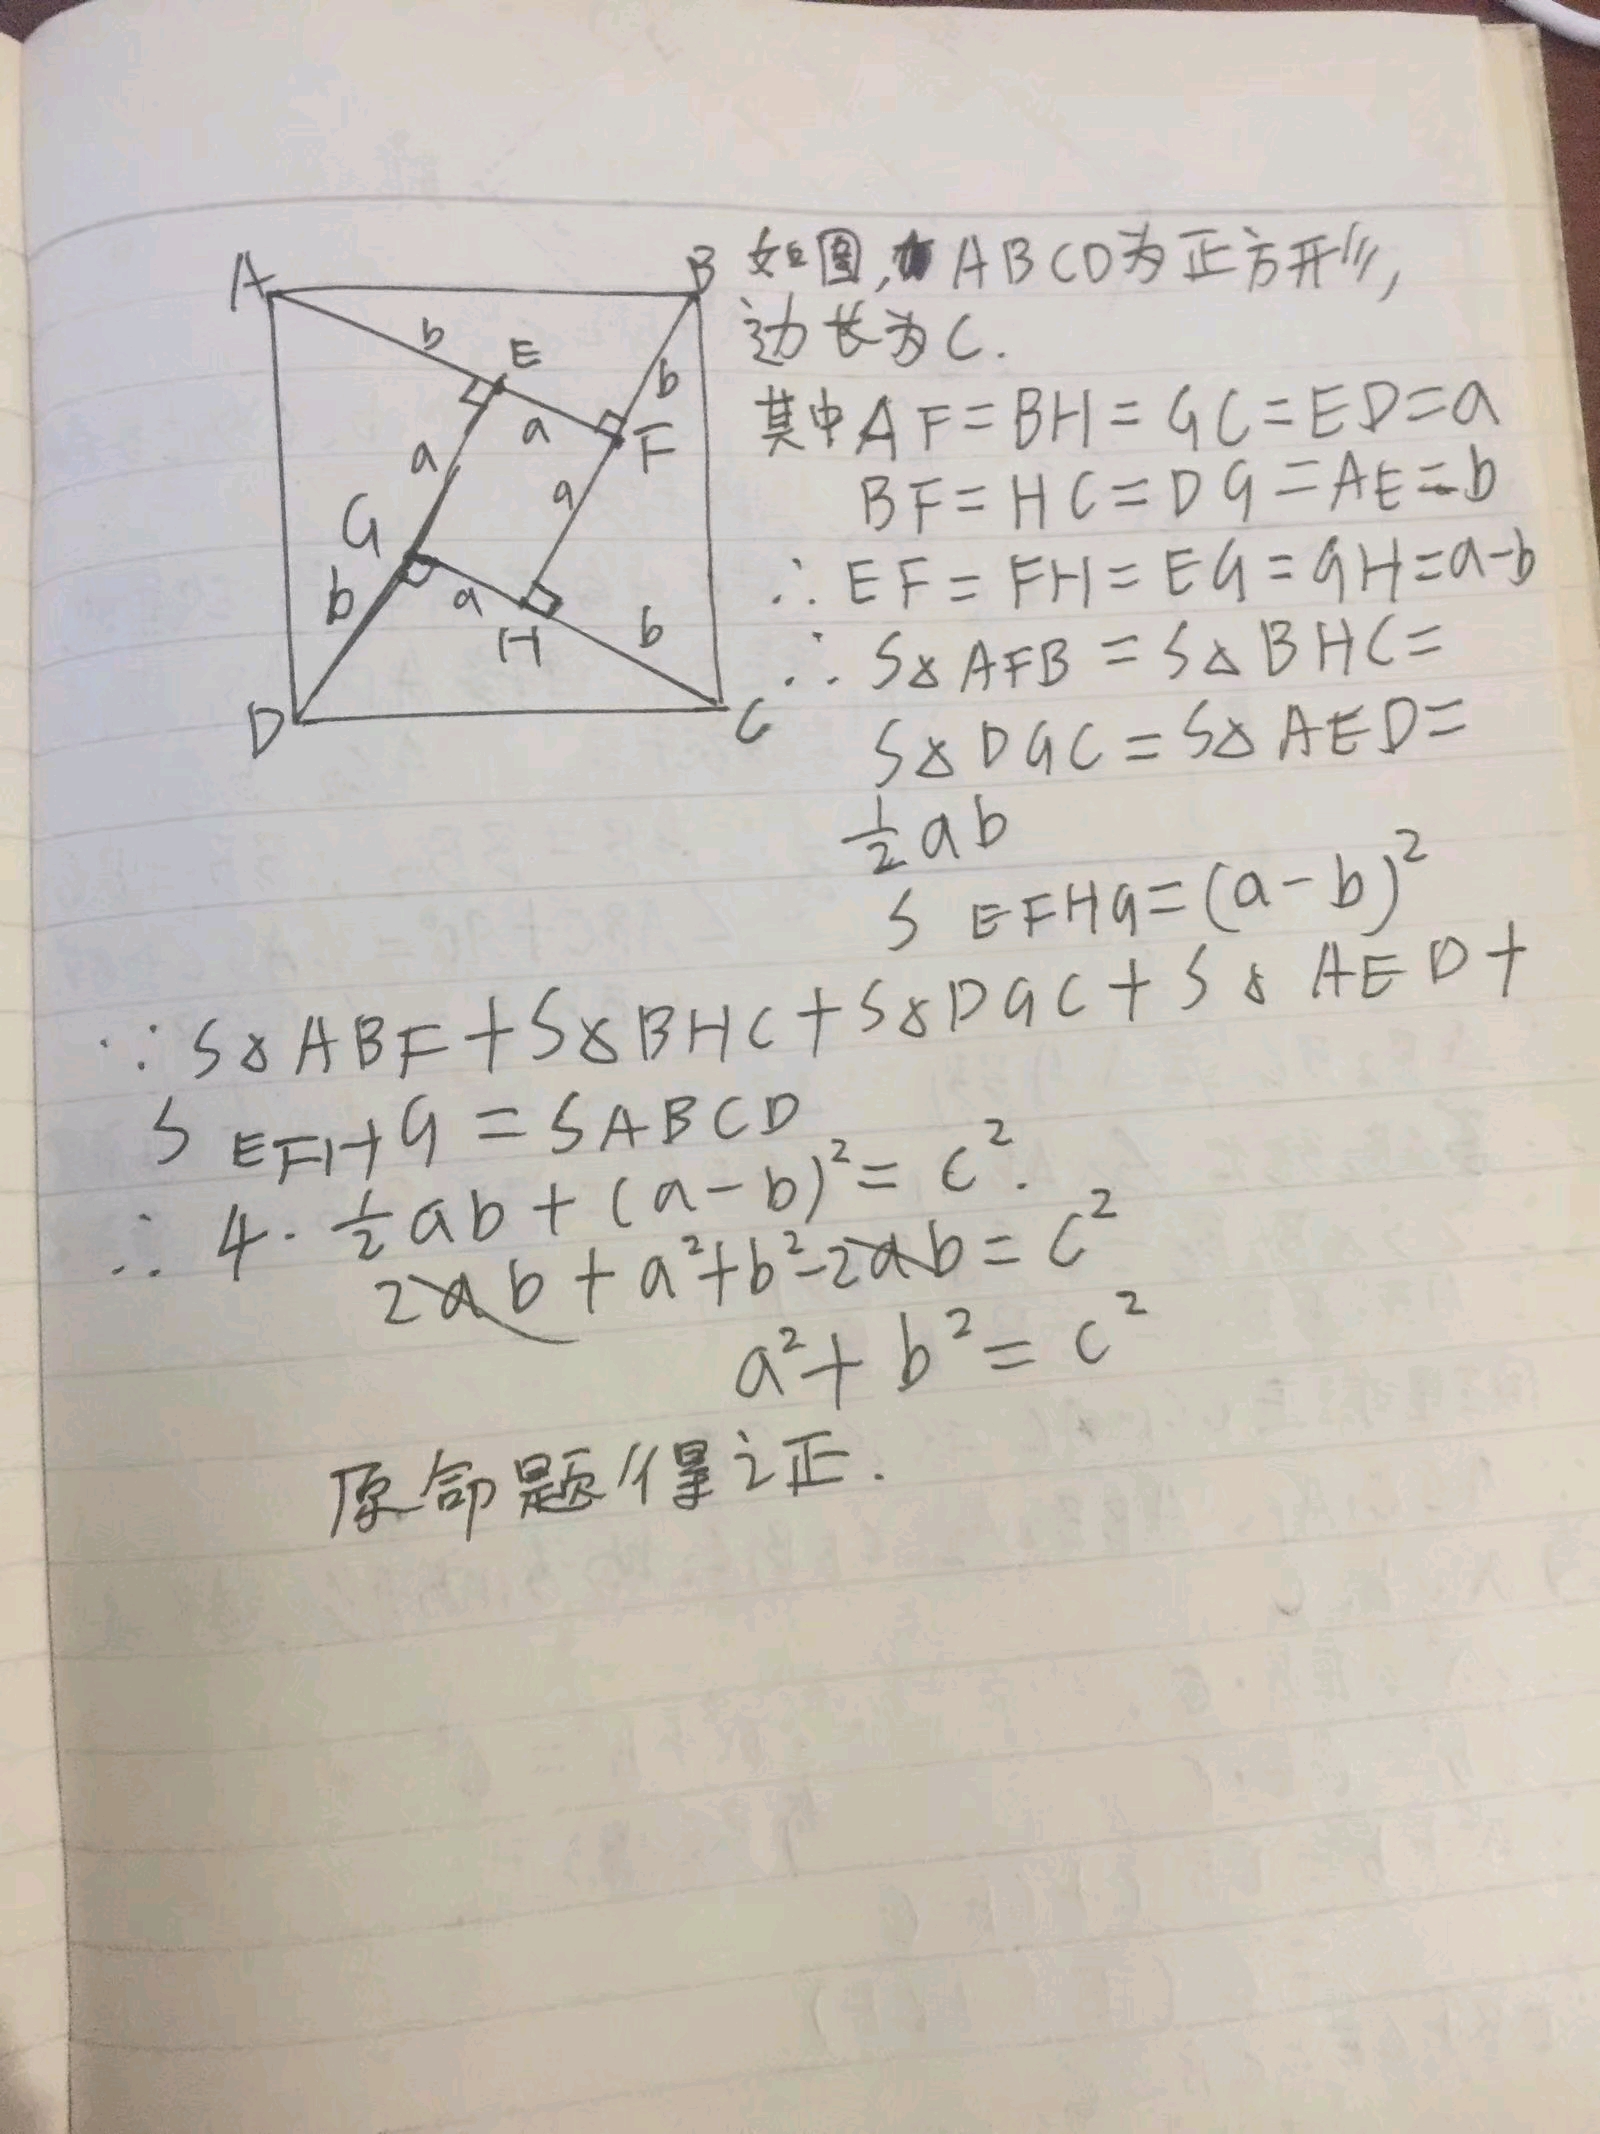 A
B
b
E
b
a
F
a
a
G
b
a
H
b
D
C
如图, ABCD为正方形,
边长为C.
其中AF=BH=GC=ED=a
BF=HC=DG=AE=b
∴EF=FH=EG=GH=a-b
∴S△AFB=S△BHC=
S△DGC=S△AED=
½ab
S EFHG=(a-b)²
∵S△ABF+S△BHC+S△DGC+S△AED+
S EFHG=SABCD
∴4·½ab+(a-b)²=c².
2ab+a²+b²-2ab=c²
a²+b²=c²
原命题得证.